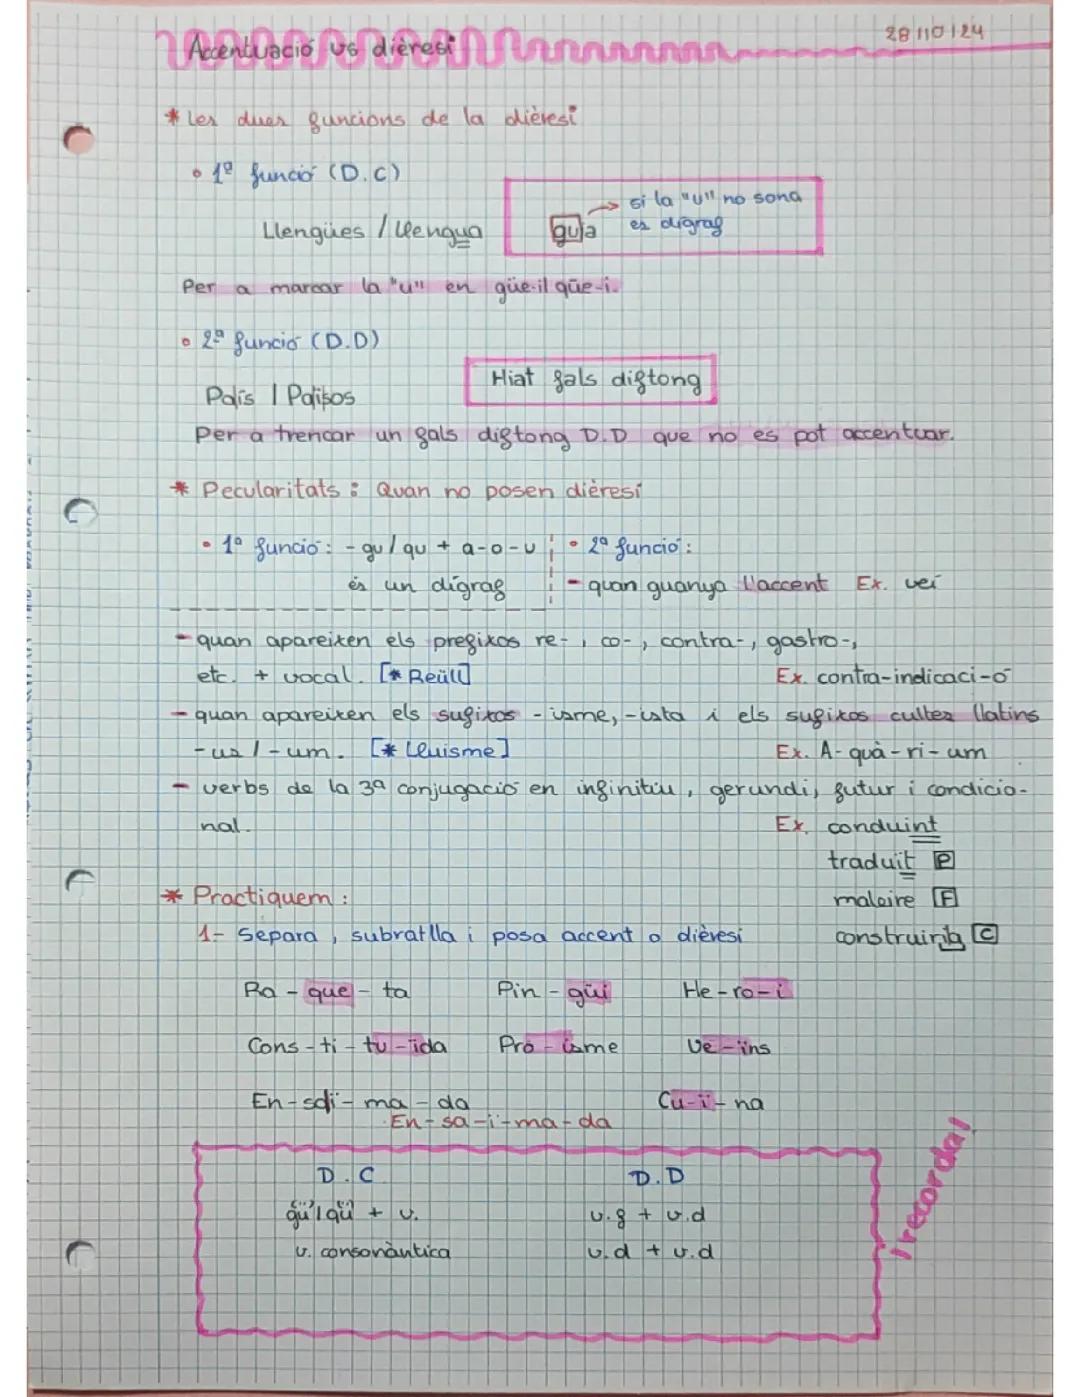 Accentuació vs dièresi
28/10/24
* Les dues funcions de la dièresi
• 1ª funció (D.C)
Llengües / Llengua
guia → si la "u" no sona
es digraf
Per a marcar la "u" en güe-i/ qüe-i.
• 2ª funció (D.D)
Hiat fals diftong
País | Països
Per a trencar un fals diftong D.D que no es pot accentuar.
* Pecularitats: Quan no posen dièresi
• 1ª funció: - gu / qu + a-o-u
és un dígraf
• 2ª funció:
- quan guanya l'accent Ex. veí
- quan apareixen els prefixos re-, co-, contra-, gastro-,
etc. + vocal. [* Reüll] Ex. contra-indicaci-ó
- quan apareixen els sufixos -isme, -ista i els sufixos cultes llatins
-us / -um. [* Lluisme] Ex. A-quà-ri-um
- verbs de la 3ª conjugació en infinitiu, gerundi, futur i condicio-
nal. Ex. conduint
traduit P
maleire F
construiria C
* Practiquem:
1- Separa, subratlla i posa accent o dièresi
Ra - que - ta Pin - güi He-ro-i
Cons-ti-tu-ïda Pro-isme Ve-ïns
En-saï-ma-da Cu-ï-na
En-sa-i-ma-da
D.C D.D
gü/qü + v. v.f + v.d
v. consonàntica v.d + v.d
¡recorda!